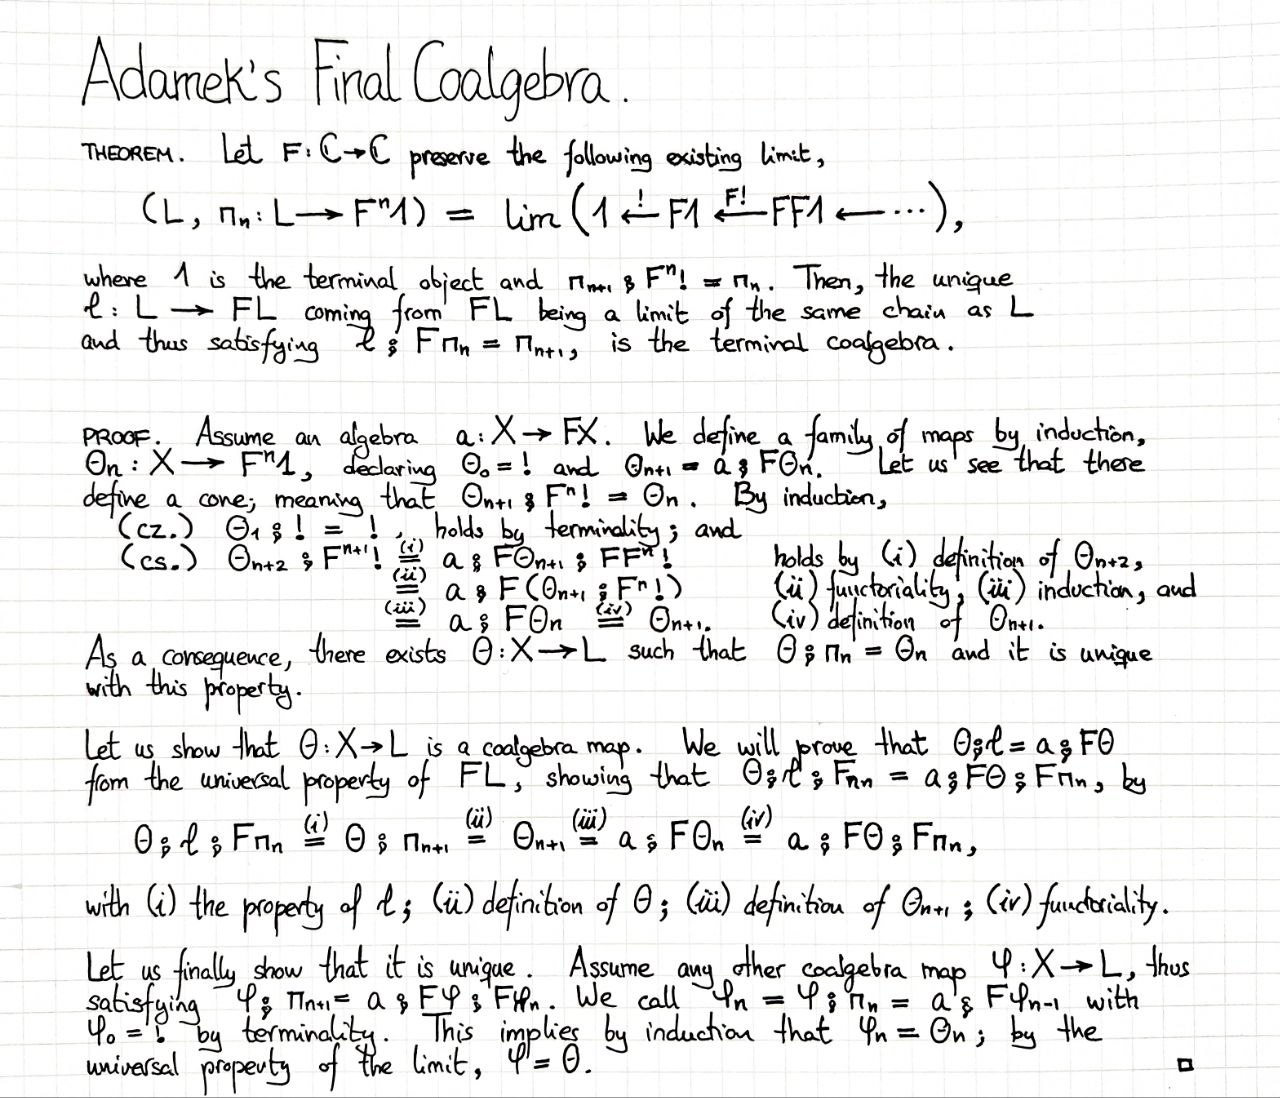 Adamek's Final Coalgebra.
THEOREM. Let F: ℂ→ℂ preserve the following existing limit,
(L, πₙ: L → Fⁿ1) = lim (1 ←! F1 ←F! FF1 ← ⋯),
where 1 is the terminal object and πₙ₊₁ ⨾ Fⁿ! = πₙ. Then, the unique
ℓ: L → FL coming from FL being a limit of the same chain as L
and thus satisfying ℓ ⨾ Fπₙ = πₙ₊₁, is the terminal coalgebra.
PROOF. Assume an algebra a: X → FX. We define a family of maps by induction,
Θₙ: X → Fⁿ1, declaring Θ₀ = ! and Θₙ₊₁ = a ⨾ FΘₙ. Let us see that there
define a cone; meaning that Θₙ₊₁ ⨾ Fⁿ! = Θₙ. By induction,
(cz.) Θ₁ ⨾ ! = !, holds by terminality; and
(cs.) Θₙ₊₂ ⨾ Fⁿ⁺¹! =(i) a ⨾ FΘₙ₊₁ ⨾ FFⁿ! holds by (i) definition of Θₙ₊₂,
=(ii) a ⨾ F(Θₙ₊₁ ⨾ Fⁿ!) (ii) functoriality, (iii) induction, and
=(iii) a ⨾ FΘₙ =(iv) Θₙ₊₁. (iv) definition of Θₙ₊₁.
As a consequence, there exists Θ: X → L such that Θ ⨾ πₙ = Θₙ and it is unique
with this property.
Let us show that Θ: X → L is a coalgebra map. We will prove that Θ⨾ℓ = a⨾FΘ
from the universal property of FL, showing that Θ⨾ℓ⨾Fπₙ = a⨾FΘ⨾Fπₙ, by
Θ⨾ℓ⨾Fπₙ =(i) Θ⨾πₙ₊₁ =(ii) Θₙ₊₁ =(iii) a⨾FΘₙ =(iv) a⨾FΘ⨾Fπₙ,
with (i) the property of ℓ; (ii) definition of Θ; (iii) definition of Θₙ₊₁; (iv) functoriality.
Let us finally show that it is unique. Assume any other coalgebra map φ: X → L, thus
satisfying φ⨾πₙ₊₁ = a⨾Fφ⨾Fπₙ. We call φₙ = φ⨾πₙ = a⨾Fφₙ₋₁ with
φ₀ = ! by terminality. This implies by induction that φₙ = Θₙ; by the
universal property of the limit, φ = Θ. □